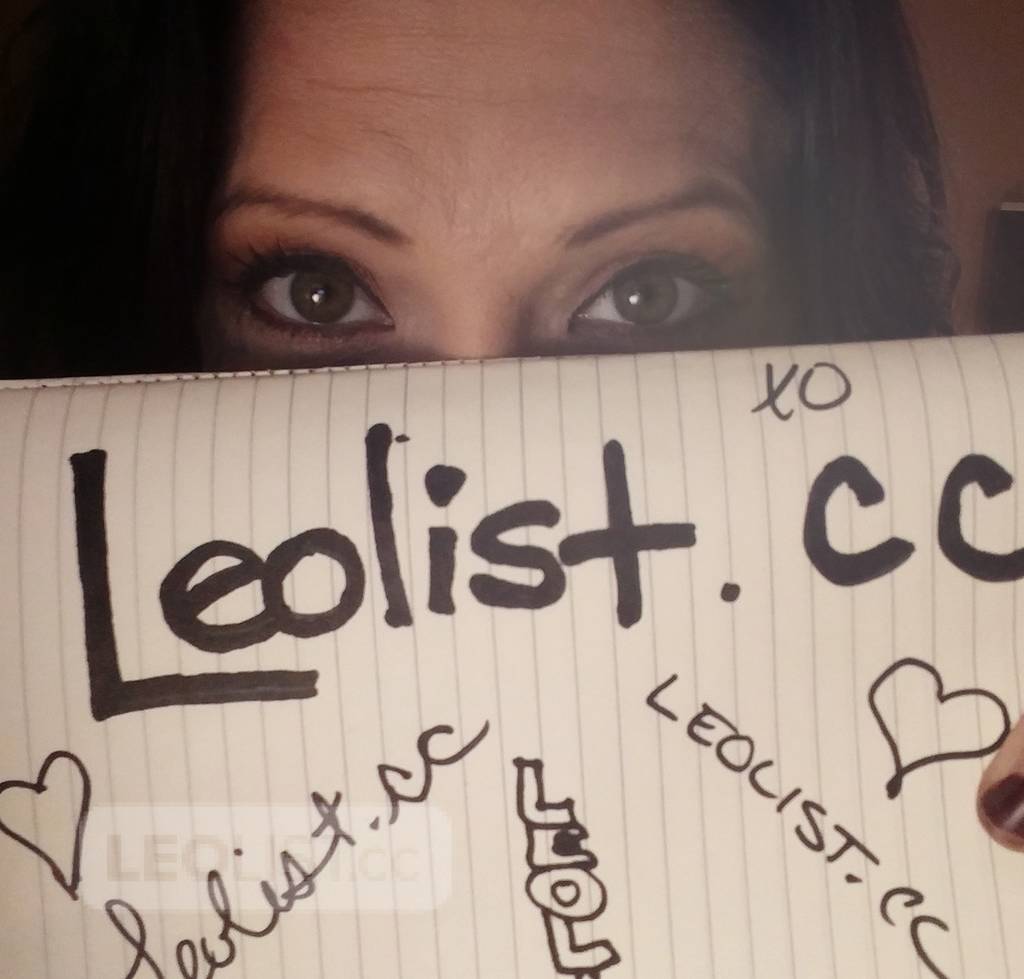 XO
Leolist.cc
LEOLIST.CC
Leolist.cc
LEOLIST.cc
LEOL